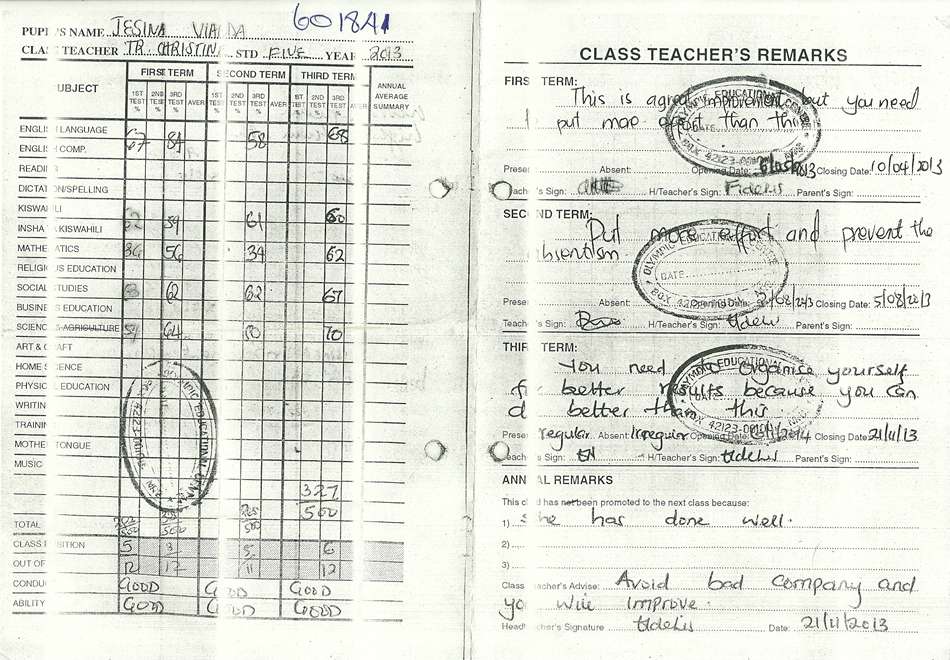 601841
PUPIL'S NAME JESINA VIALDA
CLASS TEACHER TR. CHRISTINE STD FIVE YEAR 2013
SUBJECT FIRST TERM SECOND TERM THIRD TERM ANNUAL AVERAGE SUMMARY
1ST TEST % 2ND TEST % 3RD TEST % AVER 1ST TEST % 2ND TEST % 3RD TEST % AVER 1ST TEST % 2ND TEST % 3RD TEST % AVER
ENGLISH LANGUAGE
ENGLISH COMP. 67 84 58 68
READING
DICTATION/SPELLING
KISWAHILI
INSHA YA KISWAHILI 62 59 61 60
MATHEMATICS 36 56 34 62
RELIGIOUS EDUCATION
SOCIAL STUDIES 62 62 67
BUSINESS EDUCATION
SCIENCE AGRICULTURE 64 70
ART & CRAFT
HOME SCIENCE
PHYSICAL EDUCATION
WRITING
TRAINING
MOTHER TONGUE
MUSIC
327
TOTAL 500 500 500 500
CLASS POSITION 5 3 5 6
OUT OF 12 12 11 12
CONDUCT GOOD GOOD GOOD
ABILITY GOOD GOOD GOOD
CLASS TEACHER'S REMARKS
FIRST TERM:
This is a great improvement but you need
to put more effort than this
Present Absent: Opening Date: Closing Date: 10/04/2013
Teacher's Sign: H/Teacher's Sign: Fidelis Parent's Sign:
SECOND TERM:
Put more effort and prevent the
absentism
Present Absent: Opening Date: Closing Date: 5/08/2013
Teacher's Sign: H/Teacher's Sign: Parent's Sign:
THIRD TERM:
You need to organise yourself
for better results because you can
do better than this
Present regular Absent: Irregular Opening Date: Closing Date: 21/11/13
Teacher's Sign: H/Teacher's Sign: Parent's Sign:
ANNUAL REMARKS
This child has not been promoted to the next class because:
1) She has done well.
2)
3)
Class Teacher's Advise: Avoid bad company and
you will improve.
Headteacher's Signature Date: 21/11/2013
OLYMPIC EDUCATIONAL CENTRE
DATE
BOX 42123-00100